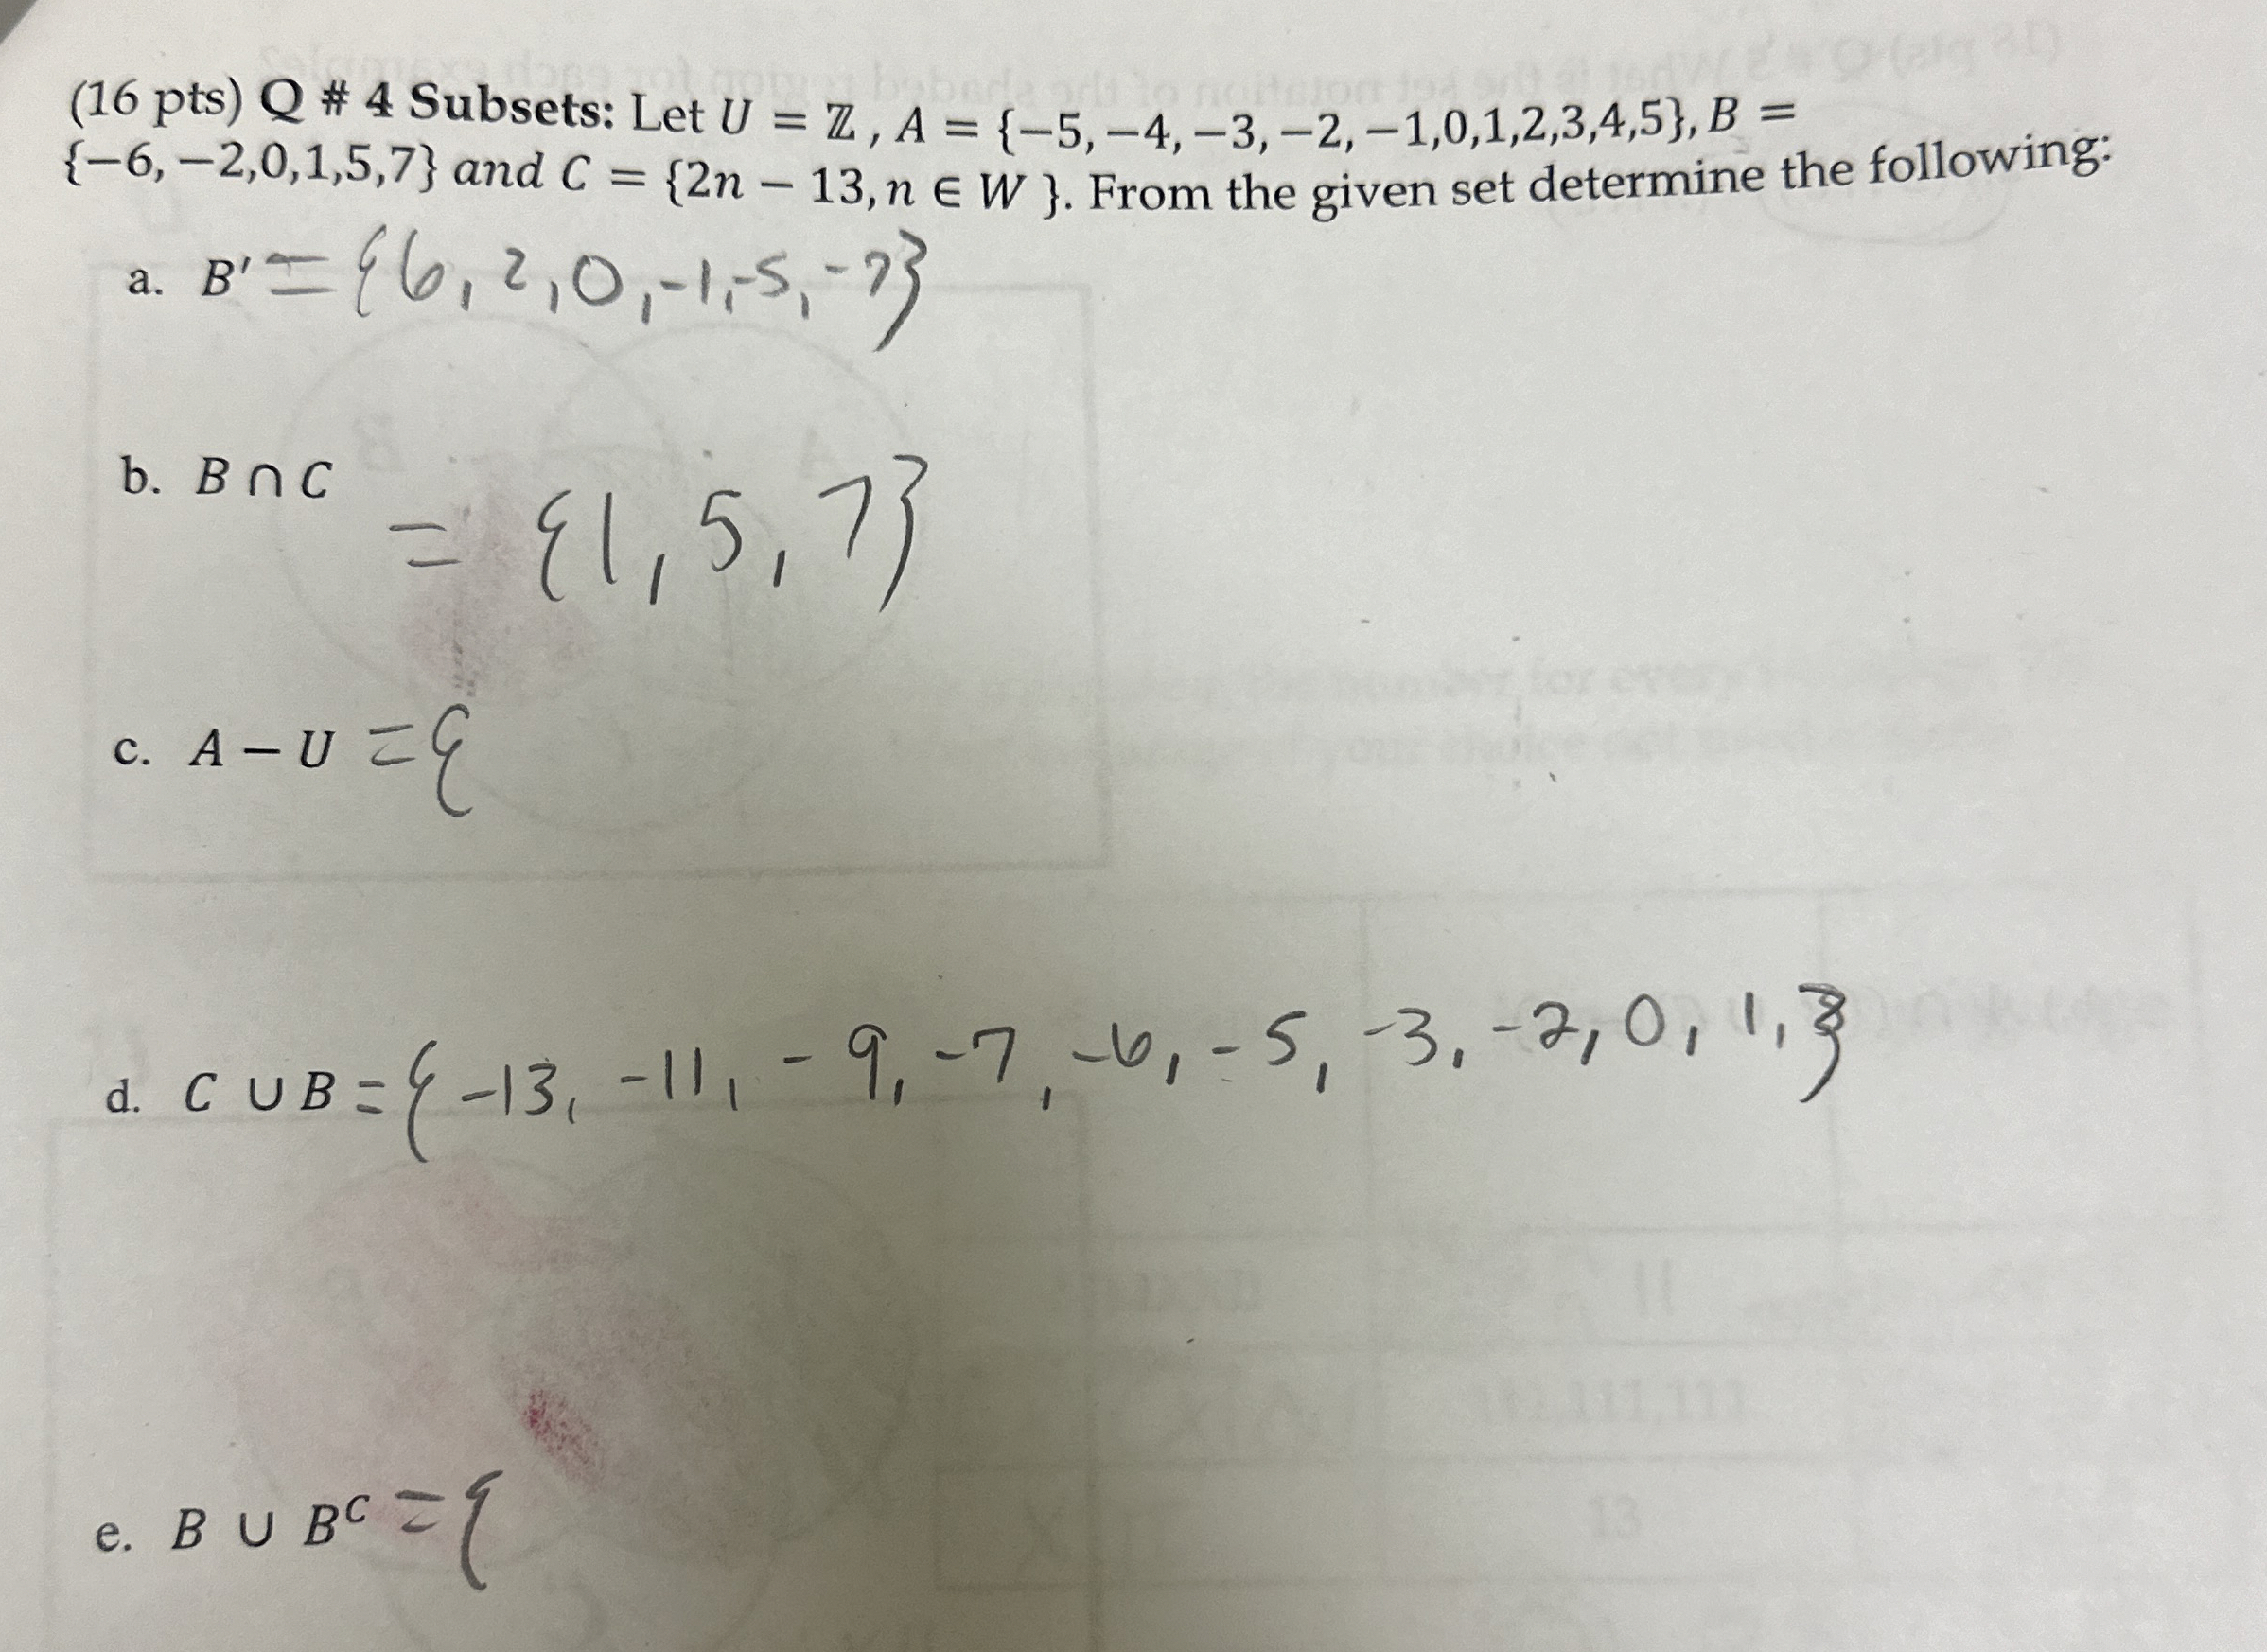 (16 pts) Q # 4 Subsets: Let U = ℤ , A = {−5, −4, −3, −2, −1,0,1,2,3,4,5}, B =
{−6, −2,0,1,5,7} and C = {2n − 13, n ∈ W }. From the given set determine the following:
a. B′ = {6, 2, 0, -1, -5, -7}
b. B ∩ C
= {1, 5, 7}
c. A − U = {
d. C ∪ B = { -13, -11, -9, -7, -6, -5, -3, -2, 0, 1, }
e. B ∪ Bᶜ = {